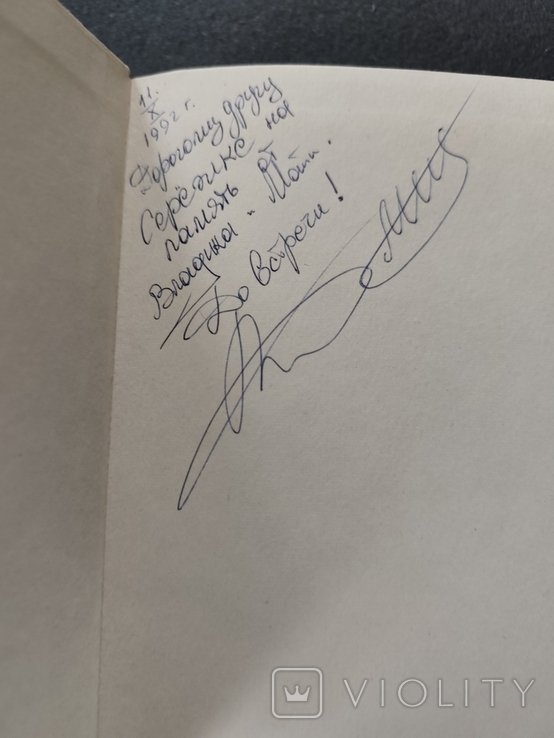 11.
X
1992 г.
Дорогому другу
Серёжке на
память от
Владика и Моти.
До встречи!
VIOLITY